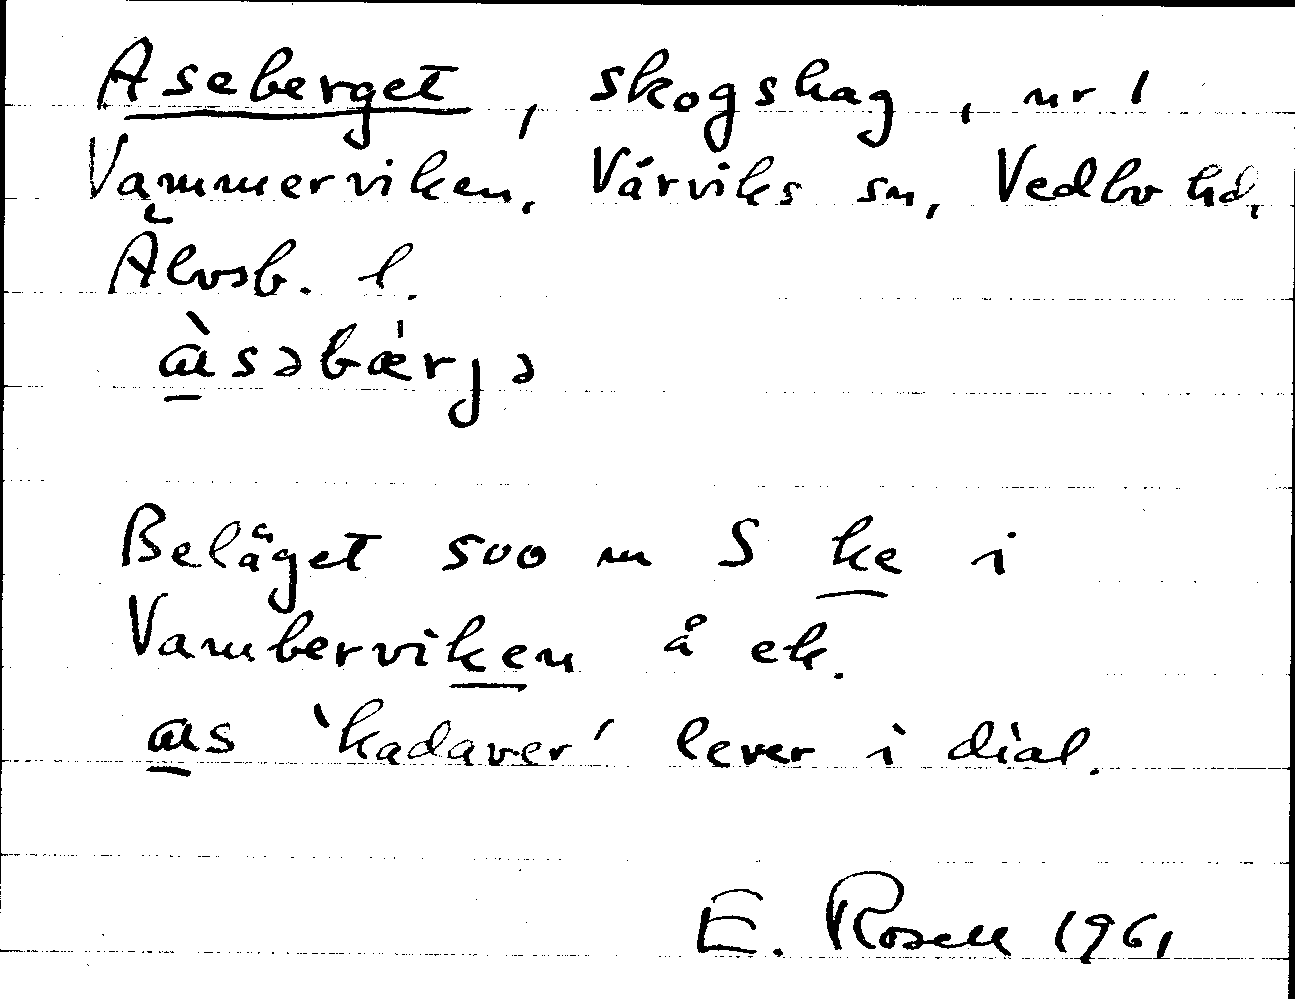 Aseberget, skogshag, nr 1
Vammerviken, Vårviks sn, Vedbo hd,
Älvsb. l.
ɑ̀səbǽrjə
Beläget 500 m S ke i
Vamberviken å ek.
ɑs 'kadaver' lever i dial.
E. Rosell 1961